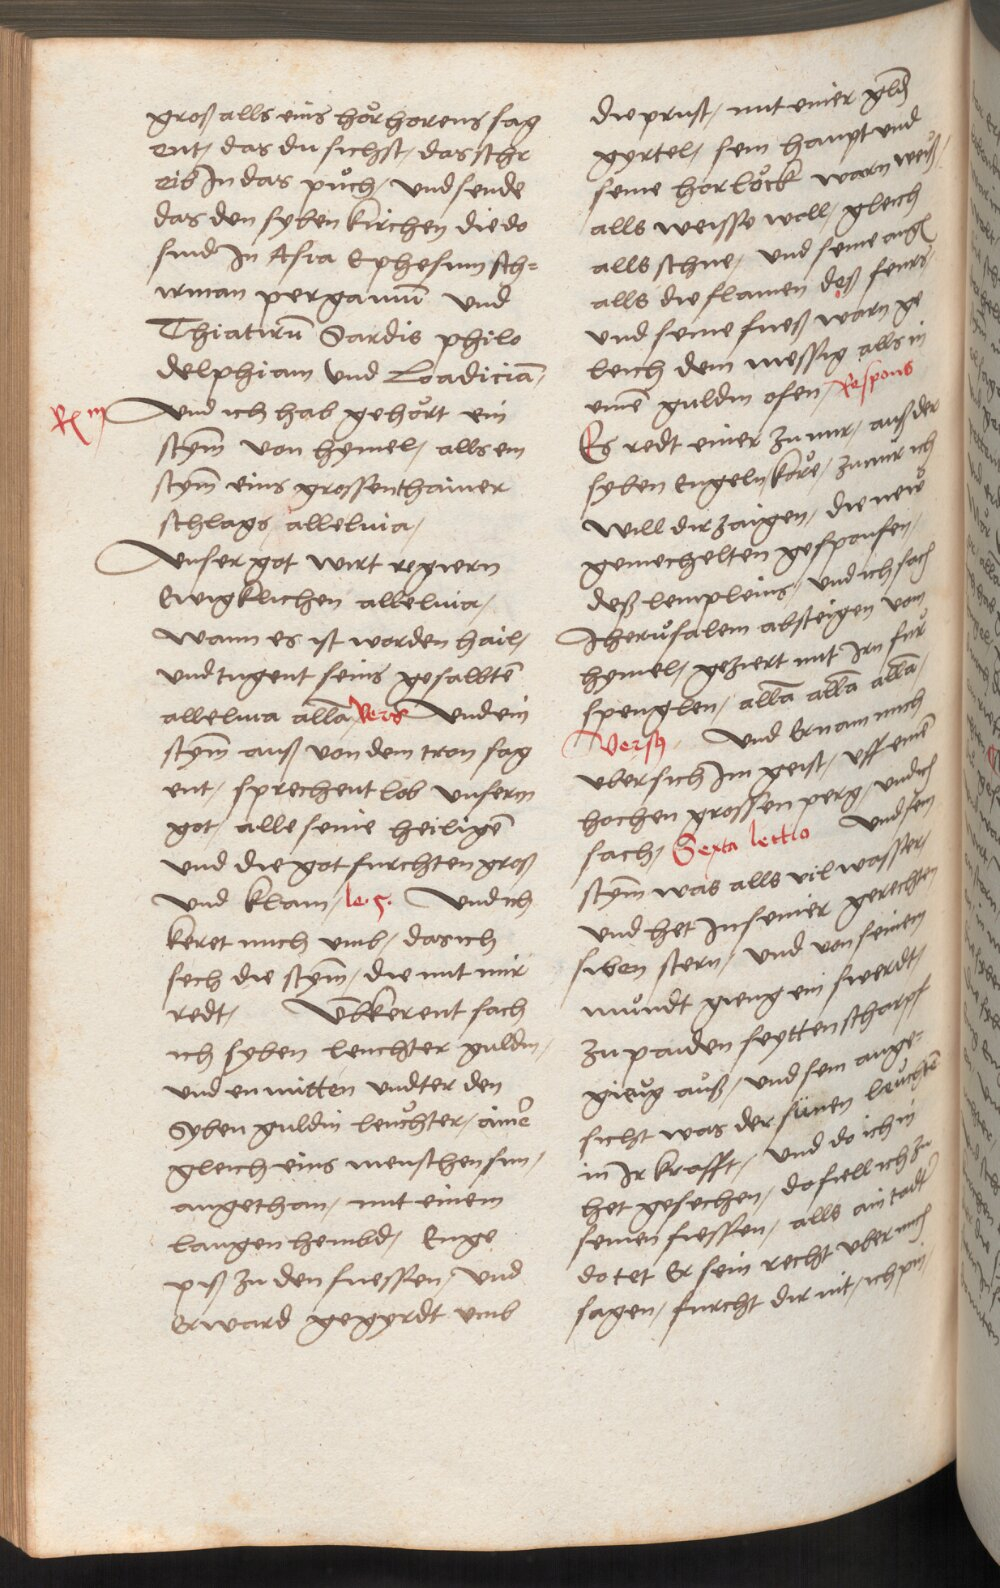 groß alls eins hör horens sag
ent, das du sichst, das schr
eib In das puͦch, und sende
das den syben kirchen die do
sind In Asia Ephesum sch=
irman pergamū und
Thiatirū Sardis philo
delphiam und Loadiciā,
R iij
Und ich hab gehört ein
stym̄ von hymel, alls ein
stym̄ eins grossen thainer
schlags, alleluia,
Unser got wirt regiern
Ewigklichen alleluia,
Wann es ist worden hail,
und tugent seins gesalbtē
alleluia allā Vers Und ein
stym̄ auß von dem tron sag
ent, sprechent lob unserm
got, alle seine heiligē
und die got furchten groß
und klain, lecz. Und ich
keret mich umb, das ich
sech die stym̄, die mit mir
redt, Umbkerent sach
ich syben leuchter guldin,
und en mitten undter den
Syben guldin leuͦchter, ainē
gleich eins menschen sun,
angethan, mit einem
langen hembd, Enge
piß zu den fuessen, Und
Er ward gegyrdt umb
die prust, mit einer gld
gyrtel, sein haupt und
seine horlöck warn weiß,
alls weisse woll, gleich
alls schne, und seine aug
alls die flamen deß feurs,
und seine fueß warn ge
leich dem messig alls in
einē guldin ofen, Respons
Es redt einer zu mir, auß der
syben Engeln kore, zu mir ich
will dir zaigen, die new
gemechelten gesponsen,
deß lempleins, und ich sach
Jheruͦsalem absteigen vom
hymel, geziert mit Irn fur
spenglen, allā allā allā,
Versꝫ. Und Er nam mich
ubersich Im geist, uff einē
hochen grossen perg, und ich
sach, Sexta lectio Und sein
stym̄ was alls vil wasser,
und het In seiner gerechten
siben stern, und von seinem
muͦndt gieng ein swerdt,
zu paiden seytten scharpf
gieng auß, und sein ange=
sicht was der sunen leuͦchtē
in Ir krafft, und do ich in
het gesechen, do fiell ich zu
seinen fiessen, alls ain todt
do tet Er sein recht uber mich
sagen, furcht dir nit, ich pin,